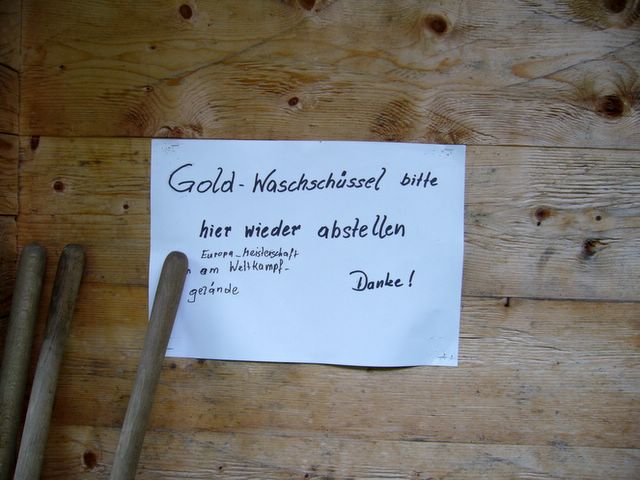 Gold-Waschschüssel bitte
hier wieder abstellen
Europa-Meisterschaft
am Weltkampf-
gelände
Danke!